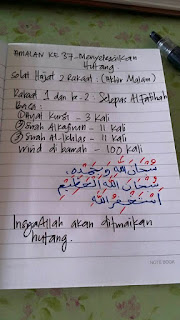 AMALAN KE 37 - Menyelesaikan
Hutang
Solat Hajat 2 Rakaat : (Akhir Malam)
Rakaat 1 dan ke-2 : Selepas Al Fatihah
baca :
① Ayat Kursi - 3 kali
② Surah Al Kafirun - 11 kali
③ Surah Al-Ikhlas - 11 kali
wirid di bawah - 100 kali
سُبْحَانَ اللهِ وَبِحَمْدِهِ،
سُبْحَانَ اللهِ الْعَظِيْمِ
أَسْتَغْفِرُ اللهَ
InsyaAllah akan ditunaikan
hutang.